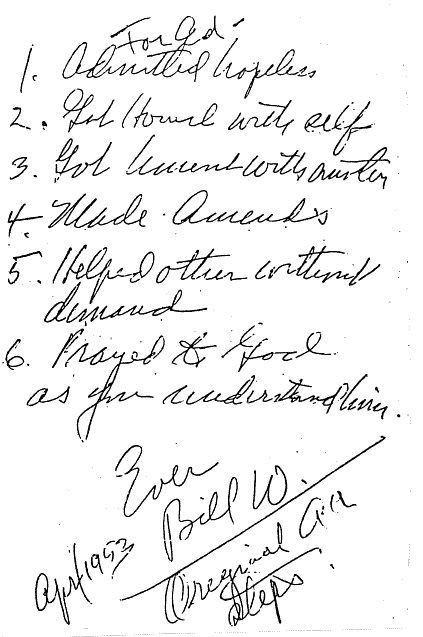 For Ed -
1. Admitted hopeless
2. Got honest with self
3. Got honest with another
4. Made Amends
5. Helped other without
demand
6. Prayed to God
as you understand him.
Ever
Bill W.
April 1953
Original AA
Steps.